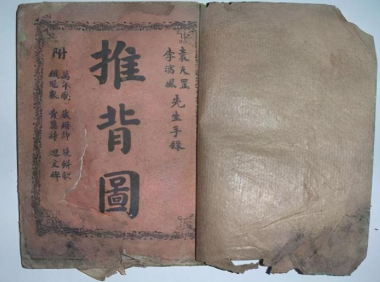 袁天罡
李淳風
先生手錄
推背圖
附
萬年歌 藏頭詩 燒餅歌
黃蘗詩 文碑